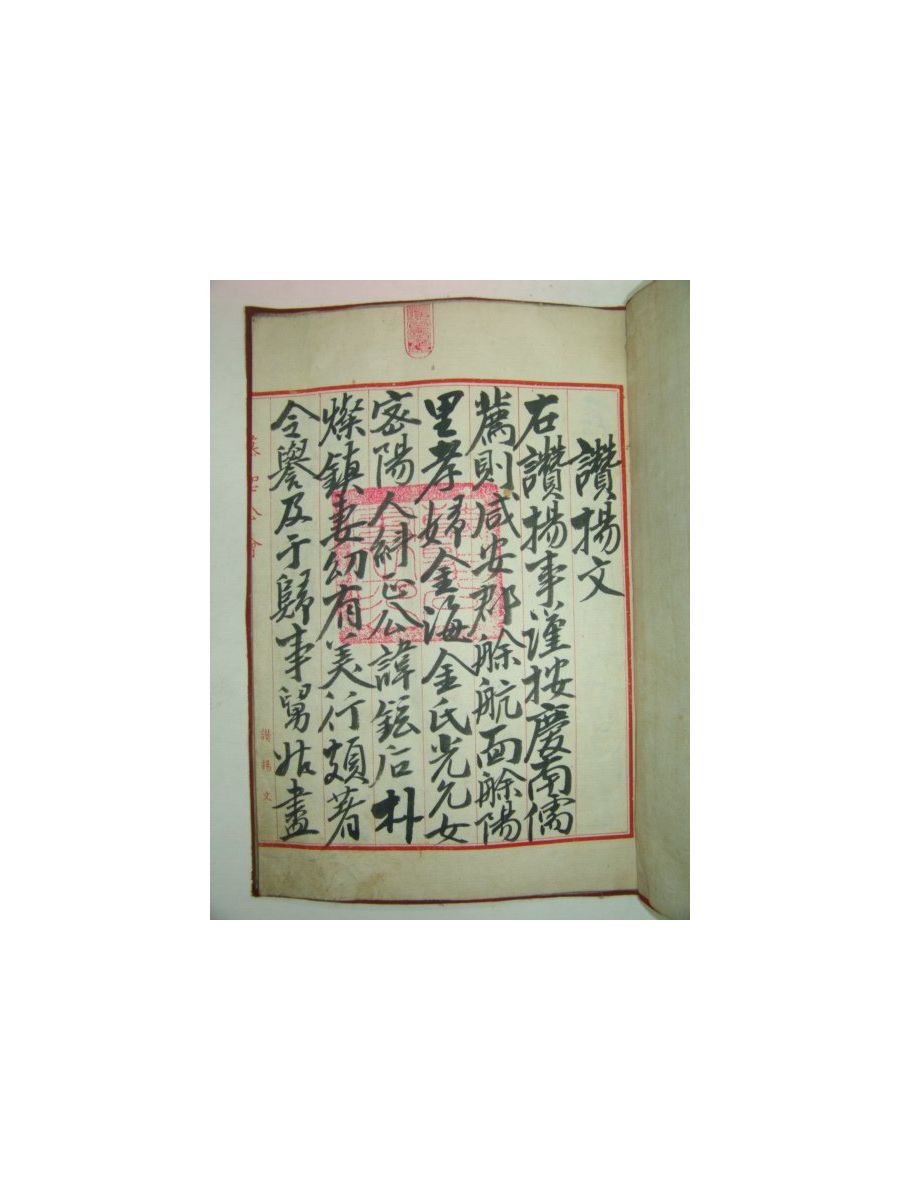 讚揚文
右讚揚事謹按慶南儒
薦則咸安郡艅航面艅陽
里孝婦金海金氏光允女
密陽人糾正公諱鉉后朴
燦鎮妻幼有美行頗著
令譽及于歸事舅姑盡
讚揚文